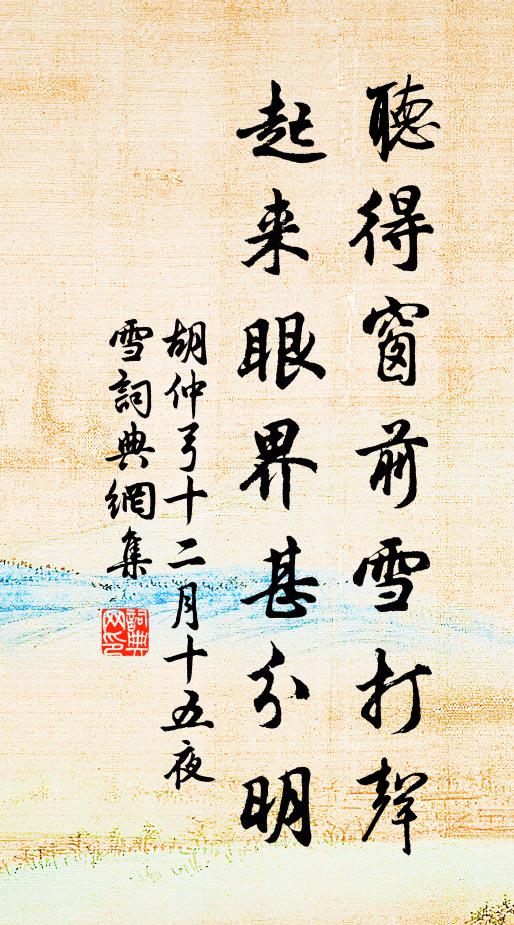 聽得窗前雪打聲
起来眼界甚分明
胡仲弓十二月十五夜
雪詞典網集
詞典
网印